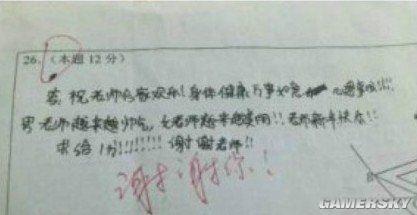 26.（本题12分）
答:祝老师合家欢乐!身体健康万事如意
男老师越来越帅气,女老师越来越美丽!老师新年快乐!!
求给1分!!!!!!! 谢谢老师!!
谢谢你.!
B
GAMERSKY